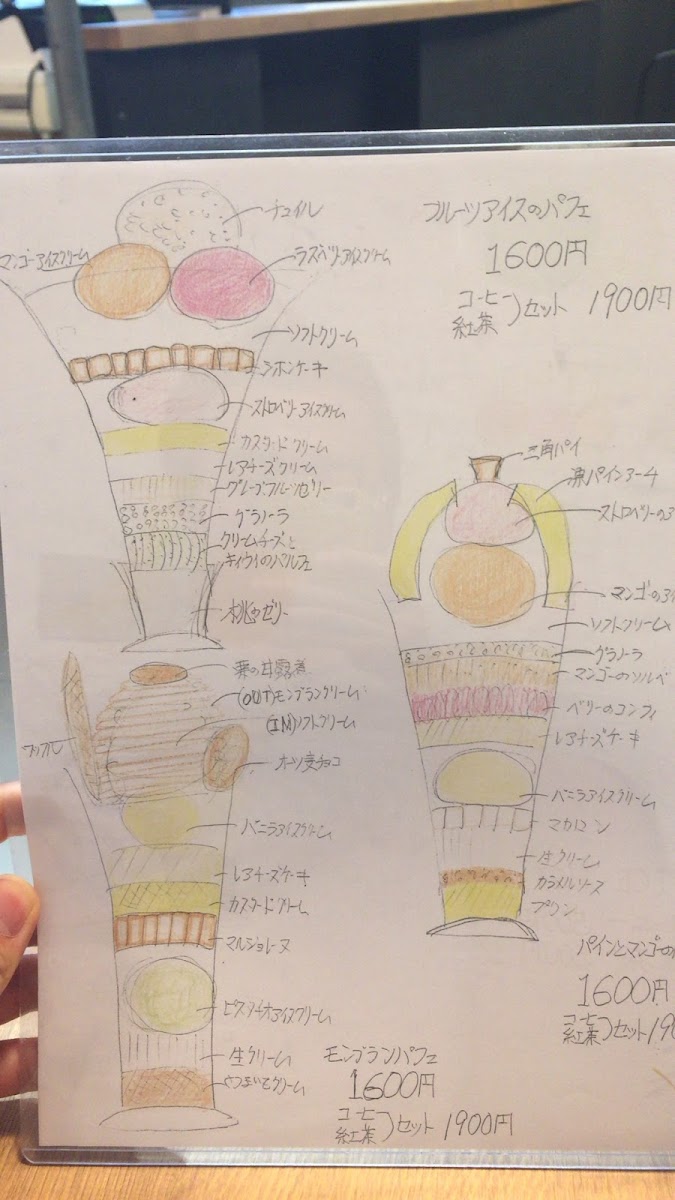 チュイル
マンゴーアイスクリーム
ラズベリーアイスクリーム
ソフトクリーム
シフォンケーキ
ストロベリーアイスクリーム
カスタードクリーム
レアチーズクリーム
グレープフルーツゼリー
グラノーラ
クリームチーズと
キィウイのパルフェ
桃のゼリー
フルーツアイスのパフェ
1600円
コーヒー
紅茶
)セット 1900円
三角パイ
凍パインアーチ
ストロベリーの
マンゴーの
ソフトクリーム
グラノーラ
マンゴーのソルベ
ベリーのコンフィ
レアチーズケーキ
バニラアイスクリーム
マカロン
生クリーム
カラメルソース
プリン
パインとマンゴーの
1600円
コーヒー
紅茶
)セット
栗の甘露煮
(OUT)モンブランクリーム
(IN)ソフトクリーム
ワッフル
オーツ麦チョコ
バニラアイスクリーム
レアチーズケーキ
カスタードクリーム
マルジョレーヌ
ピスタチオアイスクリーム
生クリーム
さつまいもクリーム
モンブランパフェ
1600円
コーヒー
紅茶
)セット 1900円